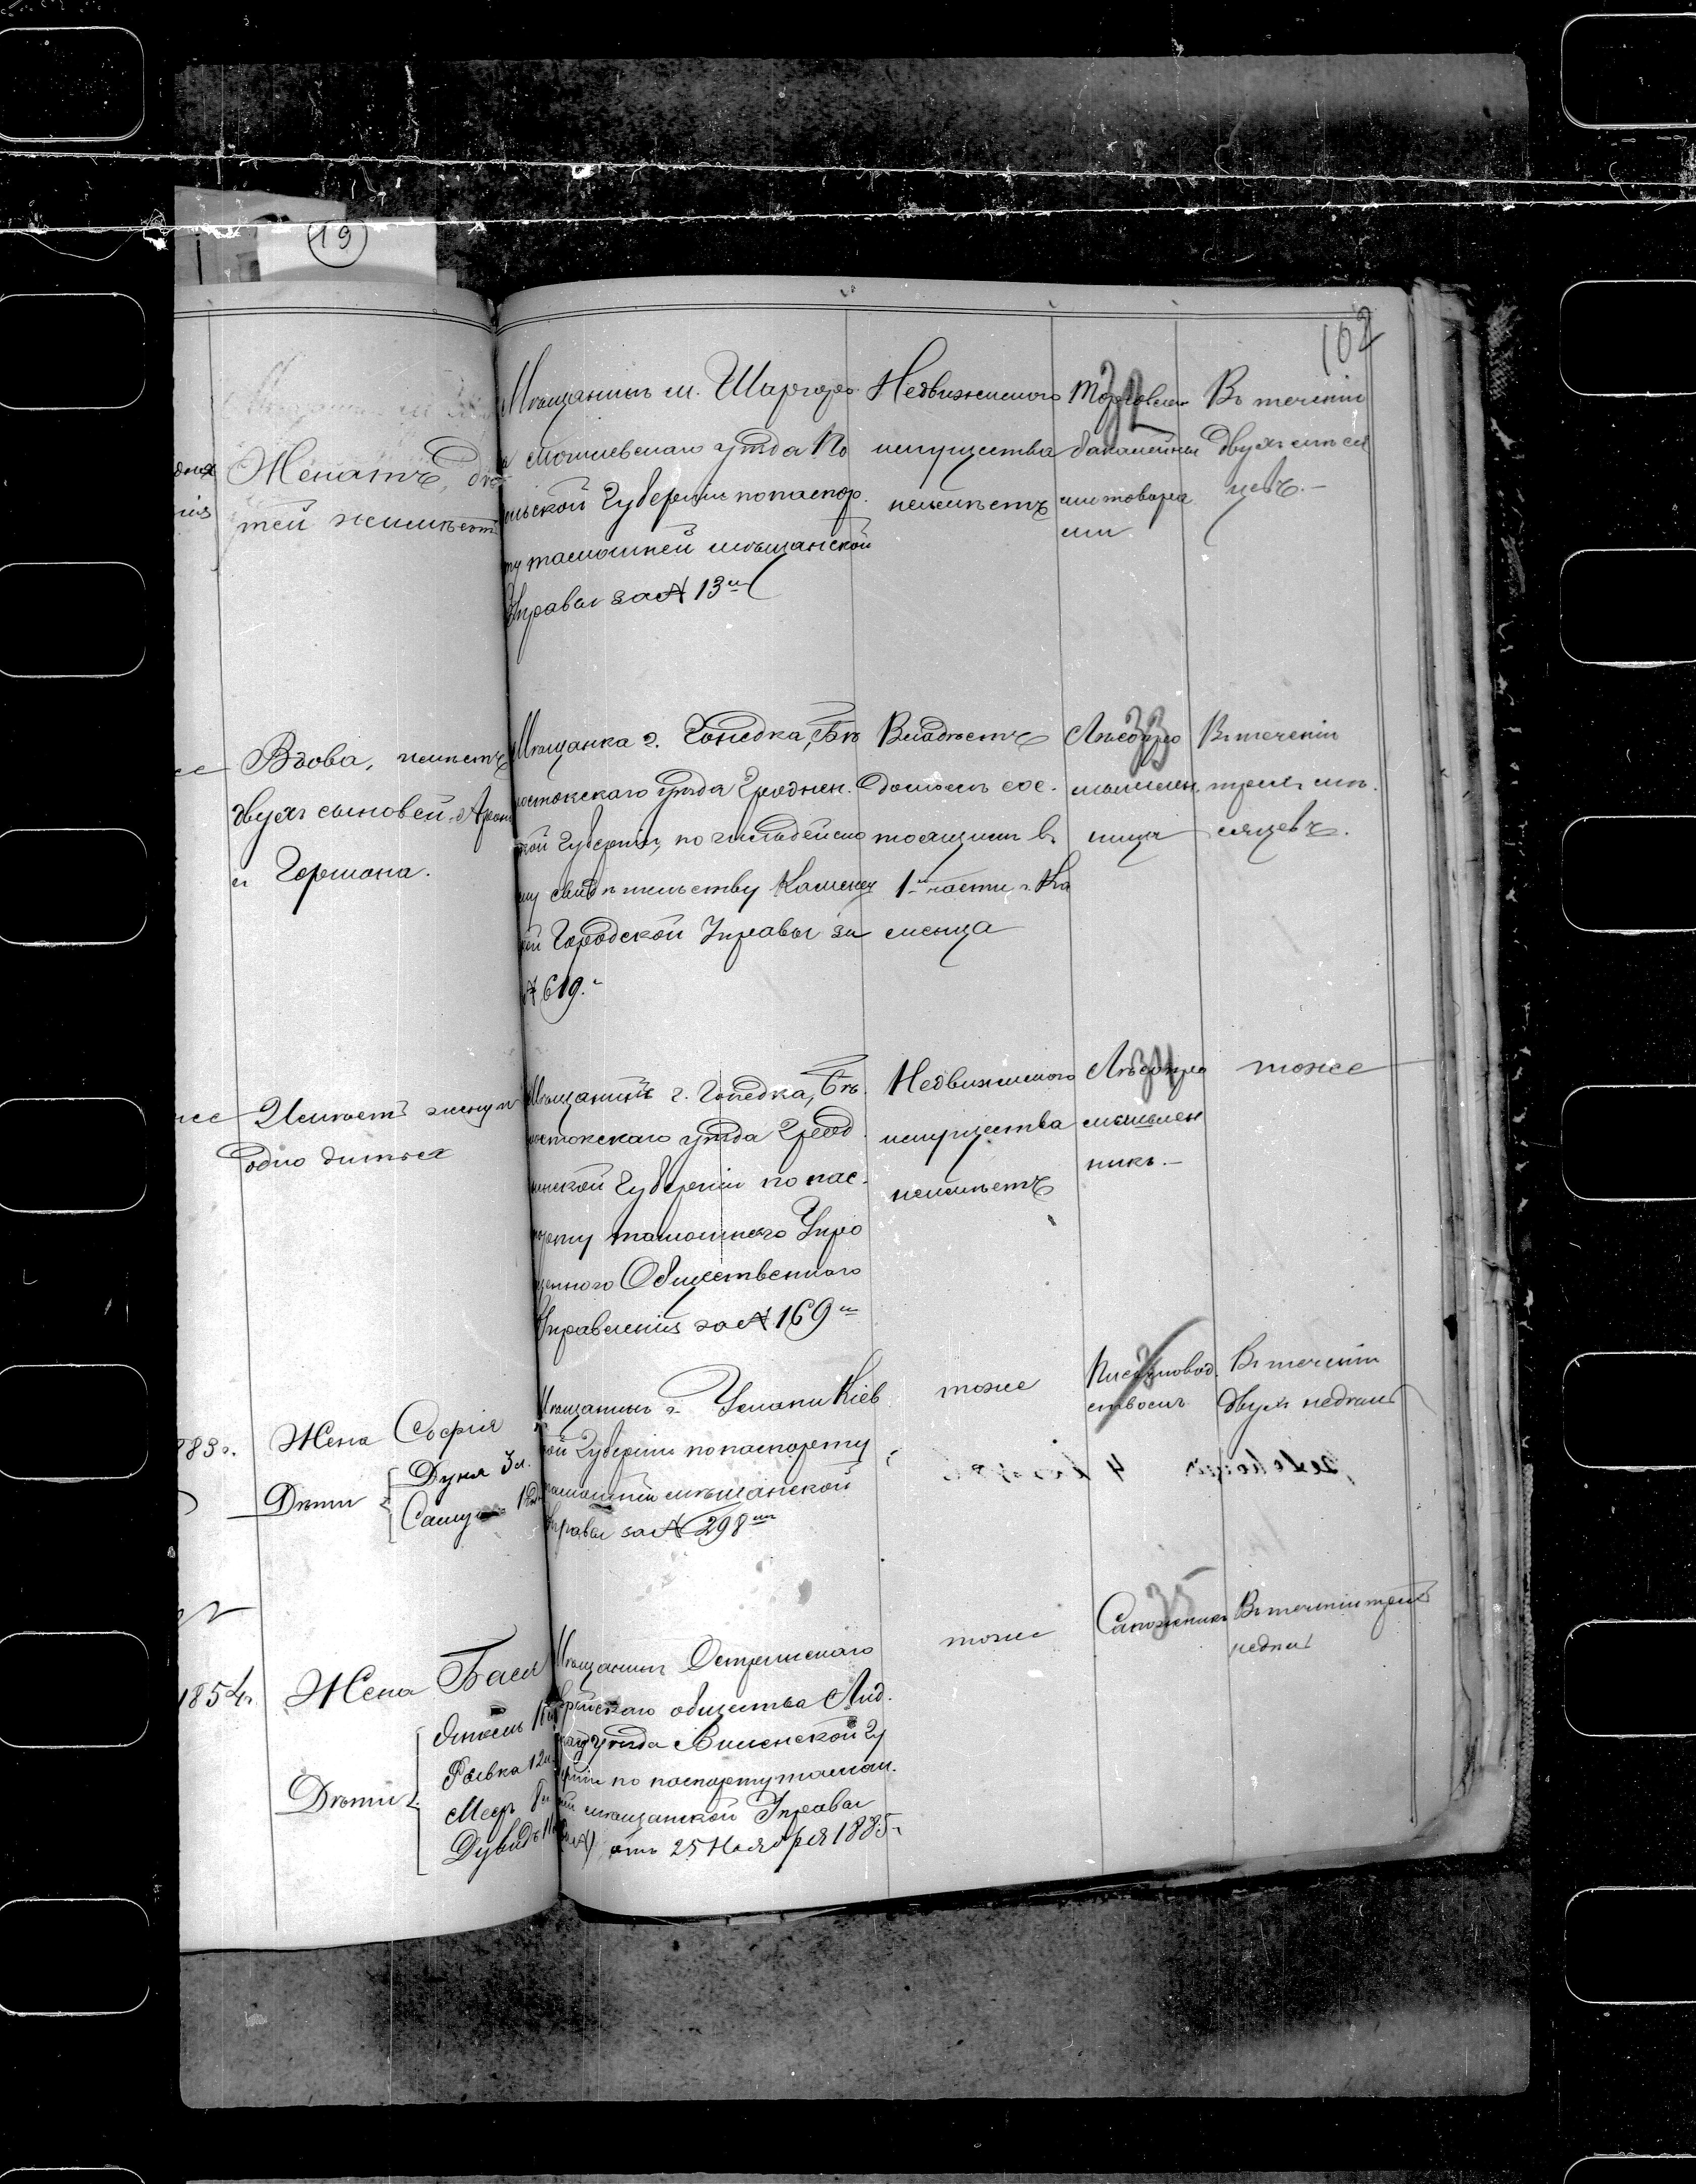 19
102
Женатъ, дѣ
тей неимѣетъ
Мѣщанинъ м. Шаргоро
а Могилевскаго уѣзда По
ольской Губерніи по паспор.
ту тамошней мѣщанской
Управы за № 13м
Недвижимого
имущества
неимѣетъ
32
Торговля
бакалейны
ми товара
ми
Въ теченіи
двухъ мѣся
цевъ.-
Вдова, имѣетъ
двухъ сыновей: Арона
и Гершона.
Мѣщанка г. Гонедка, Бѣ
лостокскаго уѣзда Гроднен.
ской Губерніи, по гильдейско
му свидѣтельству Каменец
кой Городской Управы за
№ 619.
Владѣетъ
домомъ сос.
тоящимъ въ
1й части г. Ка
менца
33
Лѣсопро
мышлен.
ница
Въ теченіи
трехъ мѣ.
сяцевъ.
Имѣетъ жену и
одно дитя
Мѣщанинъ г. Гонедка, Бѣ.
лостокскаго уѣзда Грод
ненской Губерніи по пас.
порту тамошняго Упро
щенного Общественнаго
Управленія за № 169м
Недвижимого
имущества
неимѣетъ
34
Лѣсопро
мышлен
никъ.-
тоже
883 г.
Жена Софія
Дѣти
Дуня 3 л.
Мѣщанинъ г. Умани Кіев
ской Губерніи по паспорту
тамошней мѣщанской
Управы за № 298м
тоже
Письмовод.
ствомъ
Въ теченіи
двухъ недѣль
1854 г.
Жена Бася
Дѣти
Янкель
Рывка 12 л.
Меер 8 л
Дувидъ
Мѣщанинъ Острынскаго
еврейскаго общества Лид.
скаго уѣзда Виленской Гу
берніи по паспорту тамош.
ней мѣщанской Управы
отъ 25 Ноября 1885 г.
тоже
35
Сапожникъ
Въ теченіи трехъ
недѣль